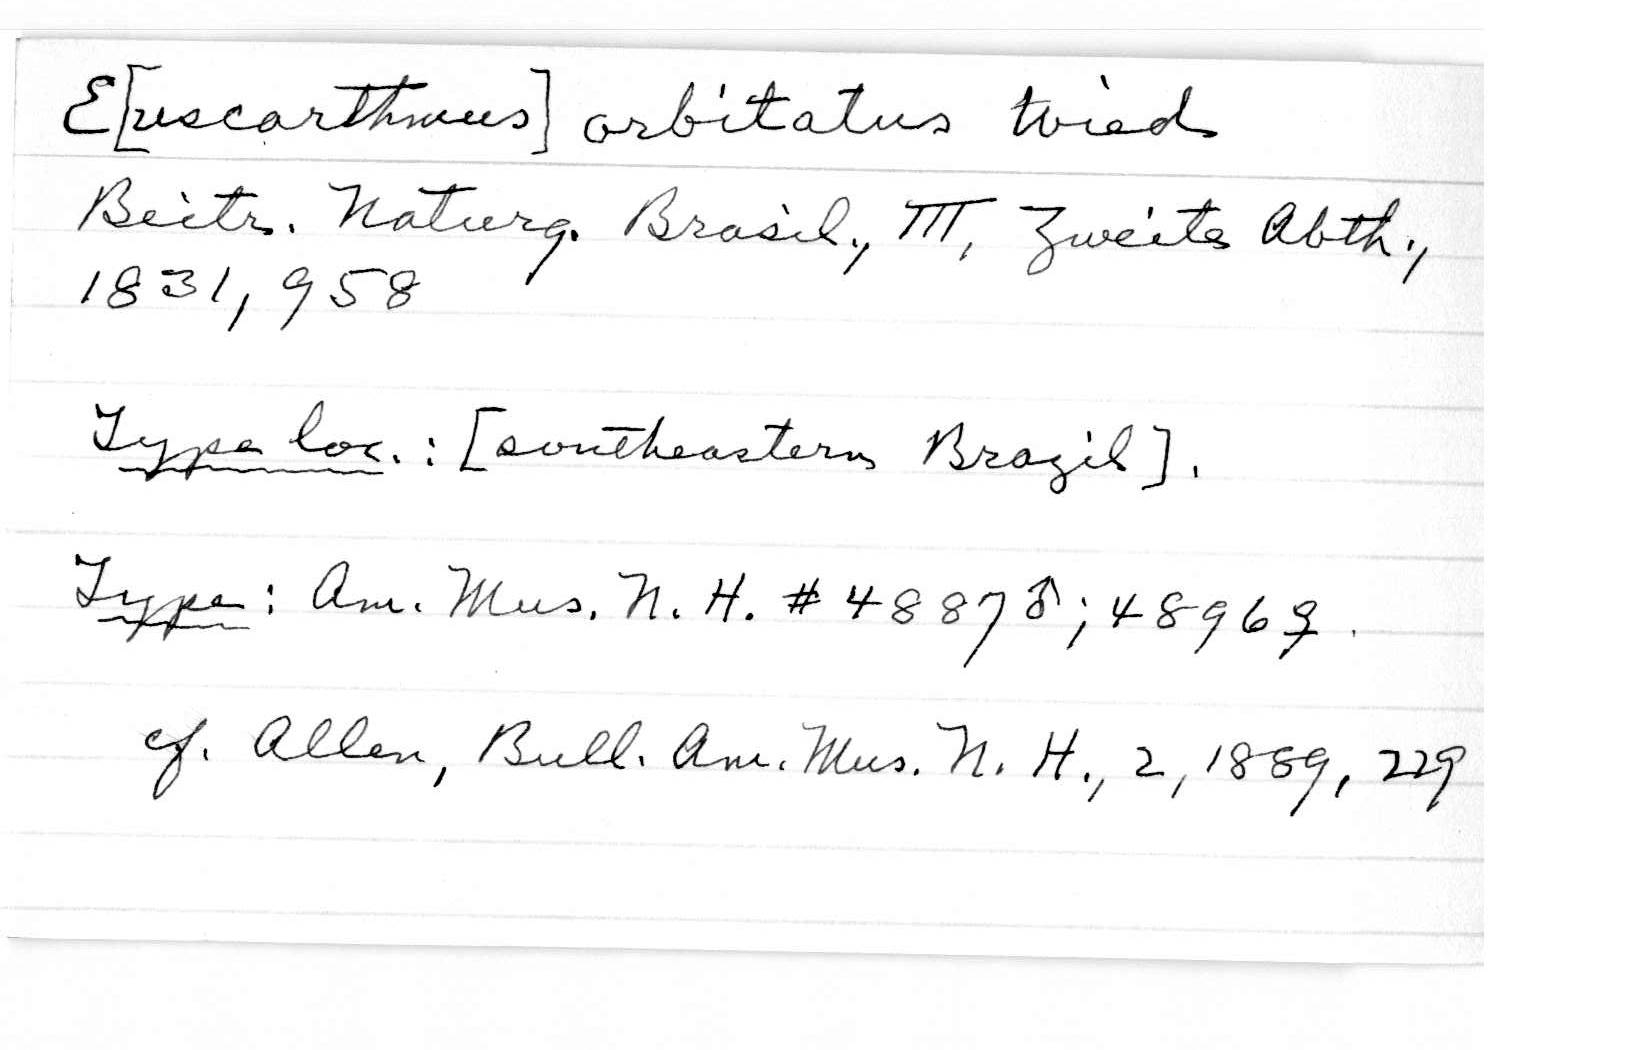 E[uscarthmus] orbitatus Wied
Beitr. Naturg. Brasil., III, Zweite Abth.,
1831, 958
Type loc.: [southeastern Brazil].
Type: Am. Mus. N. H. # 4887♂; 4896♀.
cf. Allen, Bull. Am. Mus. N. H., 2, 1889, 229